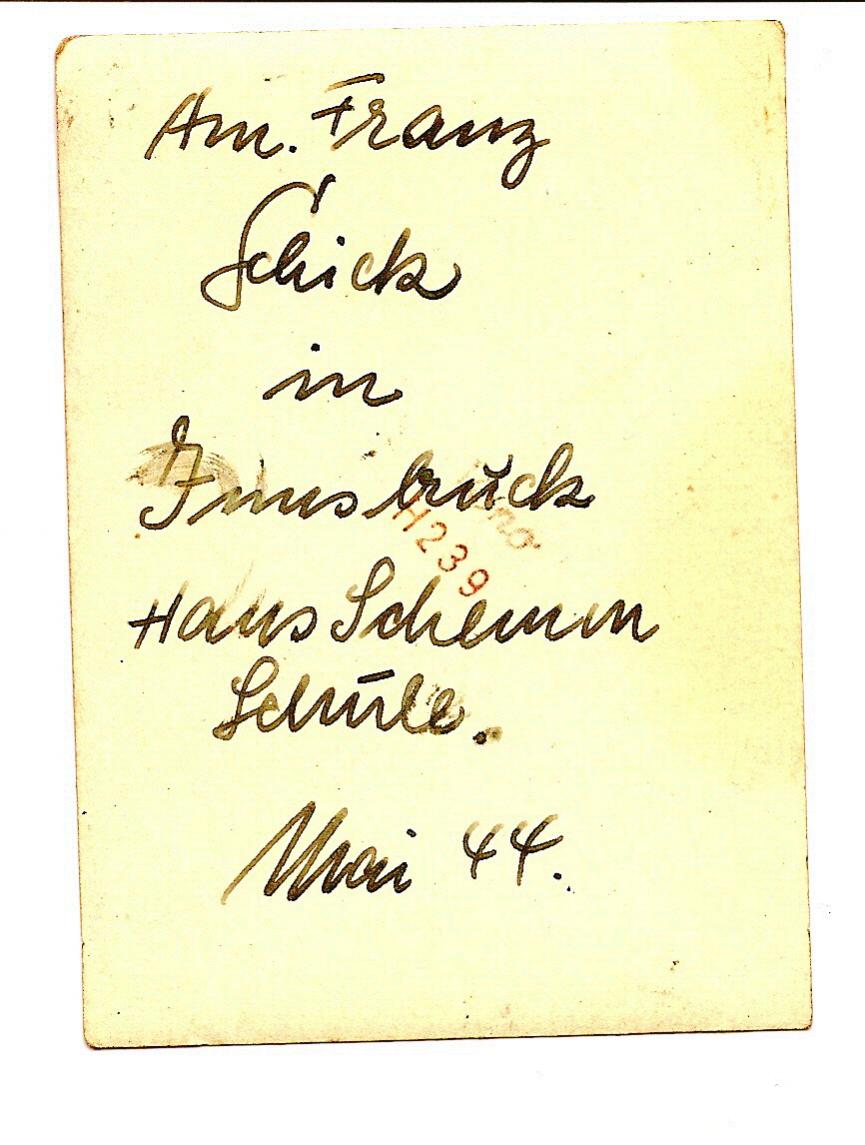 Am. Franz
Schick
in
Innsbruck
H239
Hans Schemm
Schule.
Mai 44.